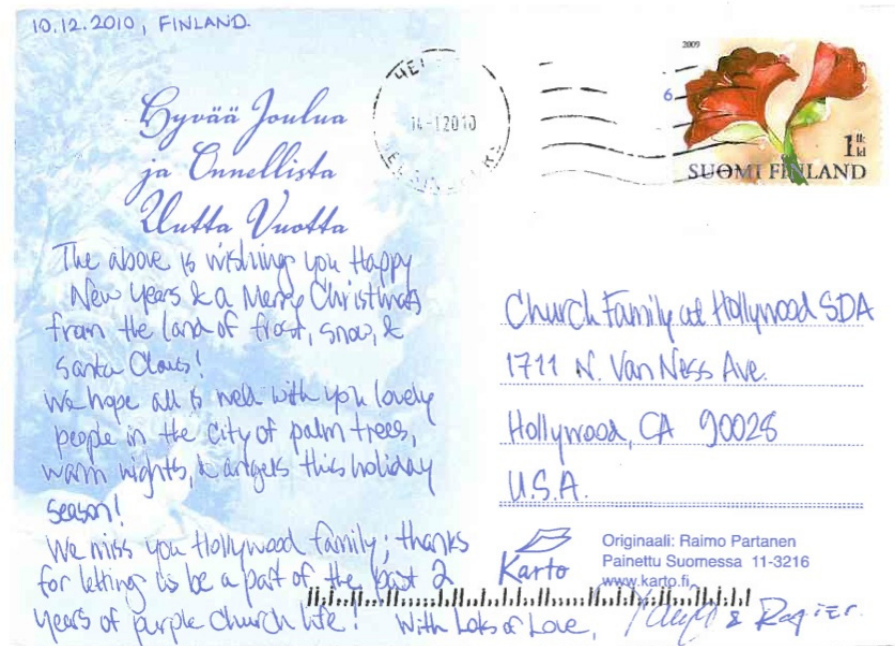 10.12.2010, FINLAND.
Hyvää Joulua
ja Onnellista
Uutta Vuotta
The above is wishing you Happy
New Years & a Merry Christmas
from the land of frost, snow, &
Santa Claus!
We hope all is well with you lovely
people in the city of palm trees,
warm nights, & angels this holiday
season!
We miss you Hollywood family; thanks
for letting us be a part of the past 2
years of purple church life!
With Lots of Love,
& Rogier.
2009
1 lk kl
SUOMI FINLAND
Church Family at Hollywood SDA
1711 N. Van Ness Ave.
Hollywood, CA 90028
U.S.A.
Karto
Originaali: Raimo Partanen
Painettu Suomessa 11-3216
www.karto.fi